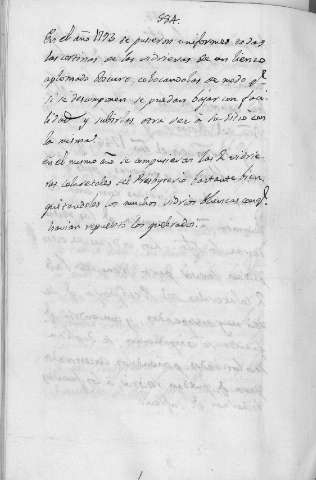 334.
En el año 1793 se pusieron uniformes todas
las cortinas de las vidrieras de un lienzo
aplomado obscuro, colocandolas de modo q.ᵉ
si se descomponen se puedan bajar con faci
lidad y subirlas otra vez a su sitio con
la misma.
En el mismo año se compusieron las vidrie
ras colaterales del Presbyterio bastante bien,
quitandoles los muchos vidrios blancos con q.ᵉ
havian repuesto los quebrados.